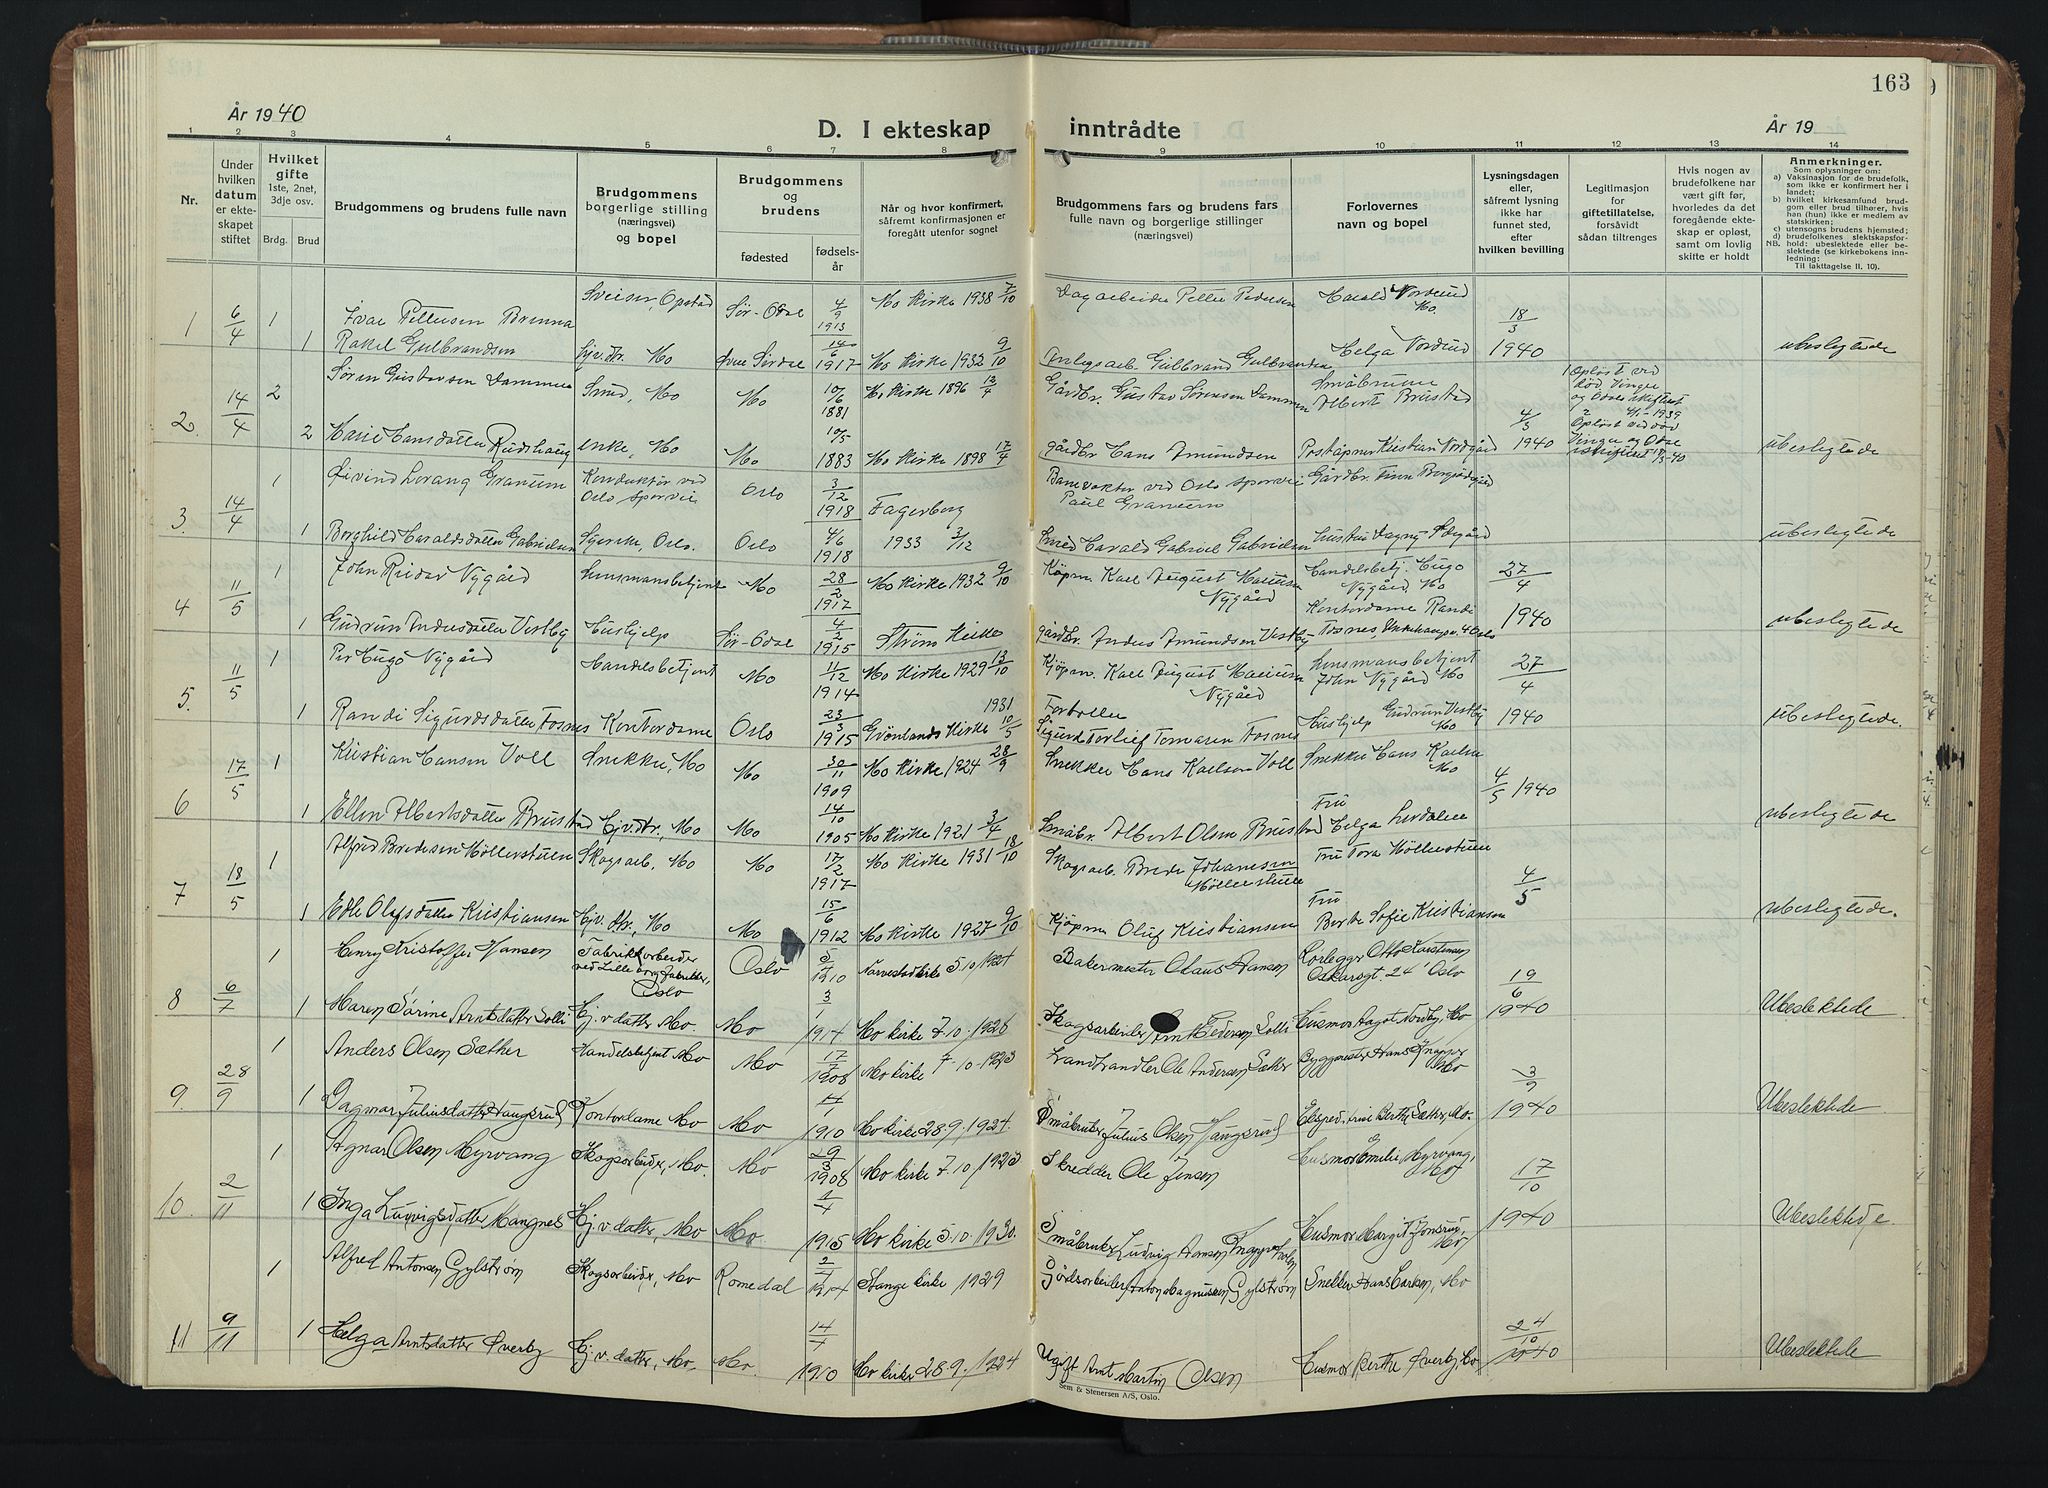 163
År 1940
D. I ekteskap inntrådte
År 19
1 2 3 4 5 6 7 8 9 10 11 12 13 14
Nr.
Under hvilken datum er ekteskapet stiftet
Hvilket gifte
1ste, 2net, 3dje osv.
Brdg. Brud
Brudgommens og brudens fulle navn
Brudgommens borgerlige stilling
(næringsvei)
og bopel
Brudgommens
og
brudens
fødested
fødselsår
Når og hvor konfirmert,
såfremt konfirmasjonen er
foregått utenfor sognet
Brudgommens fars og brudens fars
fulle navn og borgerlige stillinger
(næringsvei)
Forlovernes
navn og bopel
Lysningsdagen
eller,
såfremt lysning
ikke har
funnet sted,
efter
hvilken bevilling
Legitimasjon
for
giftetillatelse,
forsåvidt
sådan tiltrenges
Hvis nogen av
brudefolkene har
vært gift før,
hvorledes da det
foregående ekteskap er opløst,
samt om lovlig
skifte er holdt
Anmerkninger.
Som oplysninger om:
a) Vaksinasjon for de brudefolk,
som ikke er konfirmert her i
landet;
b) hvilket kirkesamfund brudgom eller brud tilhører, hvis
han (hun) ikke er medlem av
statskirken;
c) utensogns brudens hjemsted;
d) brudefolkenes slektskapsforhold: ubeslektede eller beslektede (se kirkebokens innledning:
NB. Til iakttagelse II. 10).
1 6/4 1 Ivar Pettersen Brenna Sveiser, Opstad Sør-Odal 4/9 1913 Mo Kirke 1938 7/10 Dagarbeider Petter Pedersen Harald Nordrud Mo. 18/3
1 Rakel Gulbrandsen Hjv.dtr. Mo Øvre Sirdal 14/6 1917 Mo Kirke 1932 9/10 Anlegsarb. Gulbrand Gulbrandsen Helga Nordrud 1940 ubeslegtede
2. 14/4 2 Søren Gustavsen Dammen Smed, Mo Mo 10/6 1881 Mo Kirke 1896 Gårdbr. Gustav Sørensen Dammen Småbruker Albert Brustad 4/3 1 Opløst ved død. Vinger og Odal skifterett 4/1-1939
2 Marie Hansdatter Rudshaug enke, Mo Mo 10/5 1883 Mo Kirke 1898 17/4 Gårdbr. Hans Amundsen Poståpner Kristian Nordgård 1940 2 Opløst ved død Vinger og Odal ubeslegtede
3. 14/4 1 Øivind Lorang Granum Konduktør ved Oslo Sporvei Oslo 3/12 1918 Fagerborg Banevokter ved Oslo Sporvei Paul Granum Gårdbr. Finn
1 Borghild Haraldsdatter Gabrielsen Syerske, Oslo. Oslo 4/6 1918 1933 3/12 Smed Harald Gabriel Gabrielsen Hustru Dagny ubeslegtede
4 11/5 1 John Reidar Nygård Lensmansbetjent Mo 28/2 1917 Mo Kirke 1932 9/10 Kjøpm. Karl August Nygård Handelsbetj. Hugo Nygård, Mo 27/4
1 Gudrun Andersdatter Vestby Hushjelp Sør-Odal 4/2 1915 Strøm Kirke Gårdbr. Anders Amundsen Vestby Kontordame Randi Fosnes, Oslo 1940 ubeslegtede
5. 11/5 1 Per Hugo Nygård Handelsbetjent Mo 11/12 1914 Mo Kirke 1929 13/10 Kjøpm. Karl August Nygård Lensmansbetjent John Nygård Mo 27/4
1 Randi Sigurdsdatter Fosnes Kontordame Oslo 23/3 1915 Grønlands Kirke 1931 10/5 Sigurd Torleif Tomasen Fosnes Hushjelp Gudrun Vestby Mo 1940 ubeslegtede.
6 17/5 1 Kristian Hansen Voll Snekker, Mo Mo 30/11 1909 Mo Kirke 1924 28/9 Snekker Hans Karlsen Voll Snekker Hans Karlsen Mo 4/5 1940
1 Ellen Albertsdatter Brustad Hjv.dtr., Mo Mo 14/10 1905 Mo Kirke 1921 3/4 Småbr. Albert Olsen Brustad Fru Helga ubeslegtede
7 18/5 1 Alfred Bredesen Møllerstuen Skogsarb. Mo Mo 17/2 1917 Mo Kirke 1931 18/10 Skogsarb. Brede Johansen Møllerstuen Fru Tora Møllerstuen 4/5
1 Edle Olafsdatter Kristiansen Hjv. dtr., Mo Mo 15/6 1912 Mo Kirke 1927 9/10 Kjøpm. Oluf Kristiansen Fru Berta Sofie Kristiansen ubeslegtede.
8 6/7 1 Henry Kristoffer Hansen Fabrikkarbeider ved Lilleborg fabrikker, Oslo Oslo 1910 kirke 5.10.1924 Bakermester Olaus Hansen Rørlegger Otto Karstensen Oskarsgt. 24 Oslo 19/6
1 Maren Sørine Arntsdatter Solli Hj.v datter Mo. Mo 3/1 1914 Mo kirke 7.10.1928 Skogsarbeider Arnt Pedersen Solli Husmor Aagot Nordby, Mo 1940 Ubeslektede
9. 28/9 1 Anders Olsen Sæther Handelsbetjent Mo Mo 17/7 1908 Mo kirke 7.10.1923 Landhandler Ole Andersen Sæther Byggmester Hans Knapper Mo 3/9
1 Dagmar Juliusdatter Haugsrud Kontordame Mo Mo 1910 Mo kirke 28.9.1924. Småbruker Julius Olsen Haugsrud Eksped.trise Berthe Sæther, Mo. 1940 Ubeslektede
10. 2/11 1 Agnar Olsen Myrvang Skogsarbeider, Mo. Mo 29/3 1908 Mo kirke 7.10.1923 Skredder Ole Jensen Husmor Emilie Myrvang, Mo 17/10
1 Inga Ludvigsdatter Mangnes Hj.v datter, Mo Mo 1915 Mo kirke 5.10.1930. Småbruker Ludvig Hansen Husmor Margit Jonsrud Mo 1940 Ubeslektede
11 9/11 1 Alfred Antonsen Gylstrøm Skogsarbeider, Mo Romedal 1914 Stange kirke 1929 Gårdsarbeider Anton Magnussen Gylstrøm Snekker Hans Mo 24/10
1 Helga Arntsdatter Øverby Hj.v datter, Mo. Mo. 1910 Mo kirke 28.9.1924 Ugift Arnt Martin Olsen Husmor Berthe Øverby, Mo 1940 Ubeslektede
Sem & Stenersen A/S, Oslo.